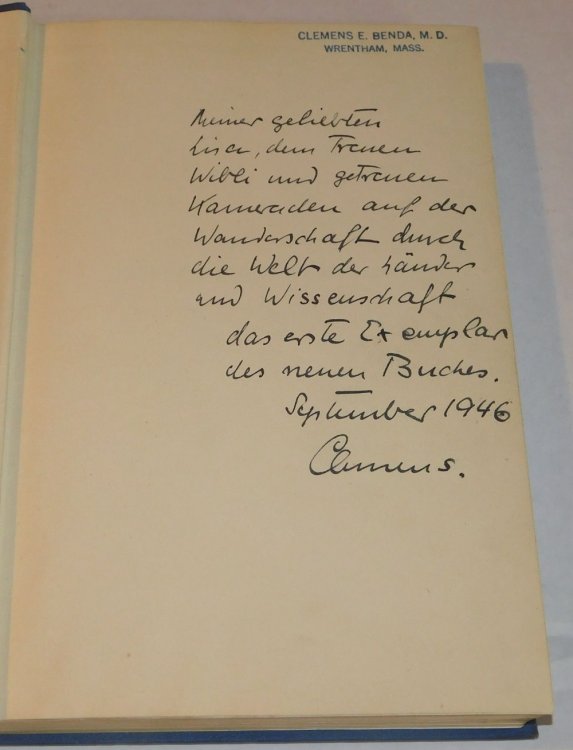 CLEMENS E. BENDA, M. D.
WRENTHAM, MASS.
Meiner geliebten
Lisa, dem Treuen
Wibli und getreuen
Kameraden auf der
Wanderschaft durch
die Welt der Länder
und Wissenschaft
das erste Exemplar
des neuen Buches.
September 1946
Clemens.